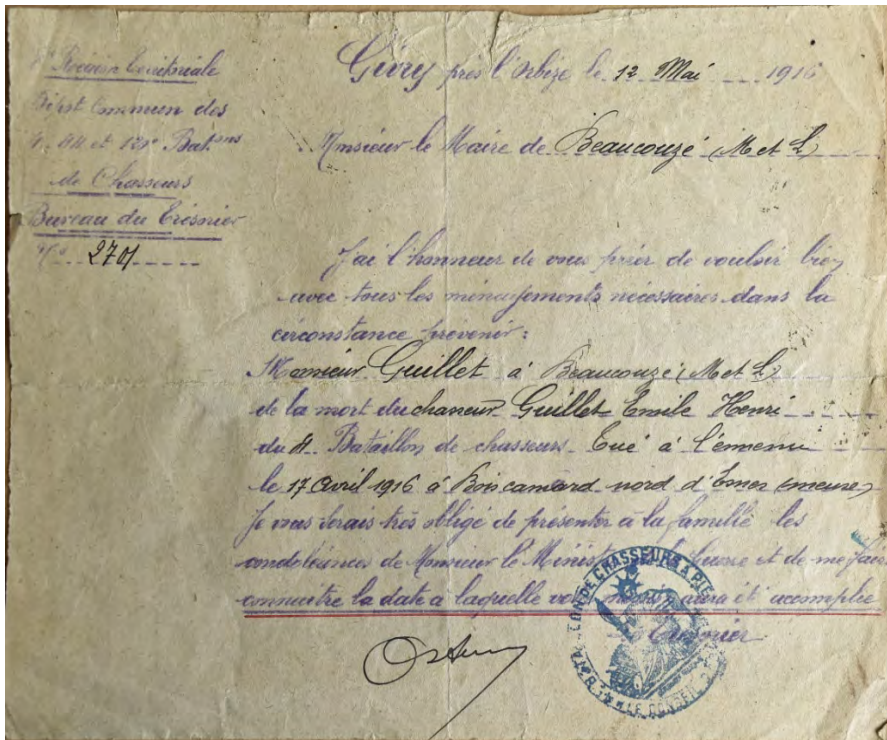 Région Territoriale
Dépôt Commun des
Bat.ons
de Chasseurs
Bureau du Trésorier
N° 2701
Givry près l'Orbize le 12 Mai 1916
Monsieur le Maire de Beaucouzé (M et L)
J'ai l'honneur de vous prier de vouloir bien
avec tous les ménagements nécessaires dans la
circonstance prévenir :
Monsieur Guillet à Beaucouzé (M et L)
de la mort du chasseur Guillet Emile Henri
du Bataillon de chasseurs Tué à l'ennemi
le 17 Avril 1916 à Bois camard nord d'Esnes (meuse)
Je vous serais très obligé de présenter à la famille les
condoléances de Monsieur le Ministre de la Guerre et de me faire
connaître la date à laquelle votre mission aura été accomplie
Le Trésorier
DE CHASSEURS A PIED
LE CONSEIL